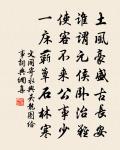 土風豪盛古長安
誰謂元侯卧治難
使客不來公事少
一床蘄簟石林寒
文同寄永興吳龍圖給
事詞典網集